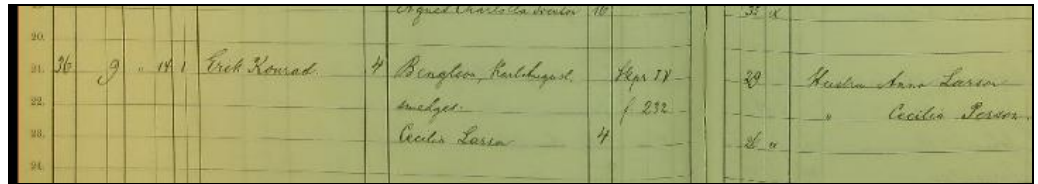 10 35 "
20.
21. 36 9 " 14 1 Erik Konrad. 4 Bengtson, Karl August 29 Hustru Anna Larson
22. smedges. f 232 " Cecilia Person.
23. Cecilia Larson 4 26 "
24.